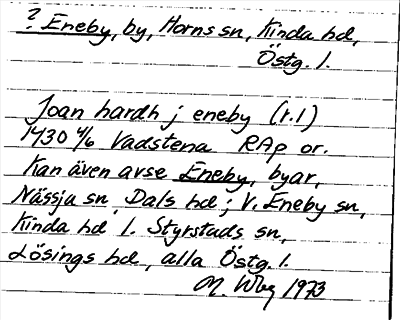 ? Eneby, by, Horns sn, Kinda hd,
Östg. l.
Joan hardh j eneby (r.1)
1430 4/6 Vadstena RAp or.
Kan även avse Eneby, byar,
Nässja sn, Dals hd; V. Eneby sn,
Kinda hd l. Styrstads sn,
Lösings hd, alla Östg. l.
M. Wbg 1973